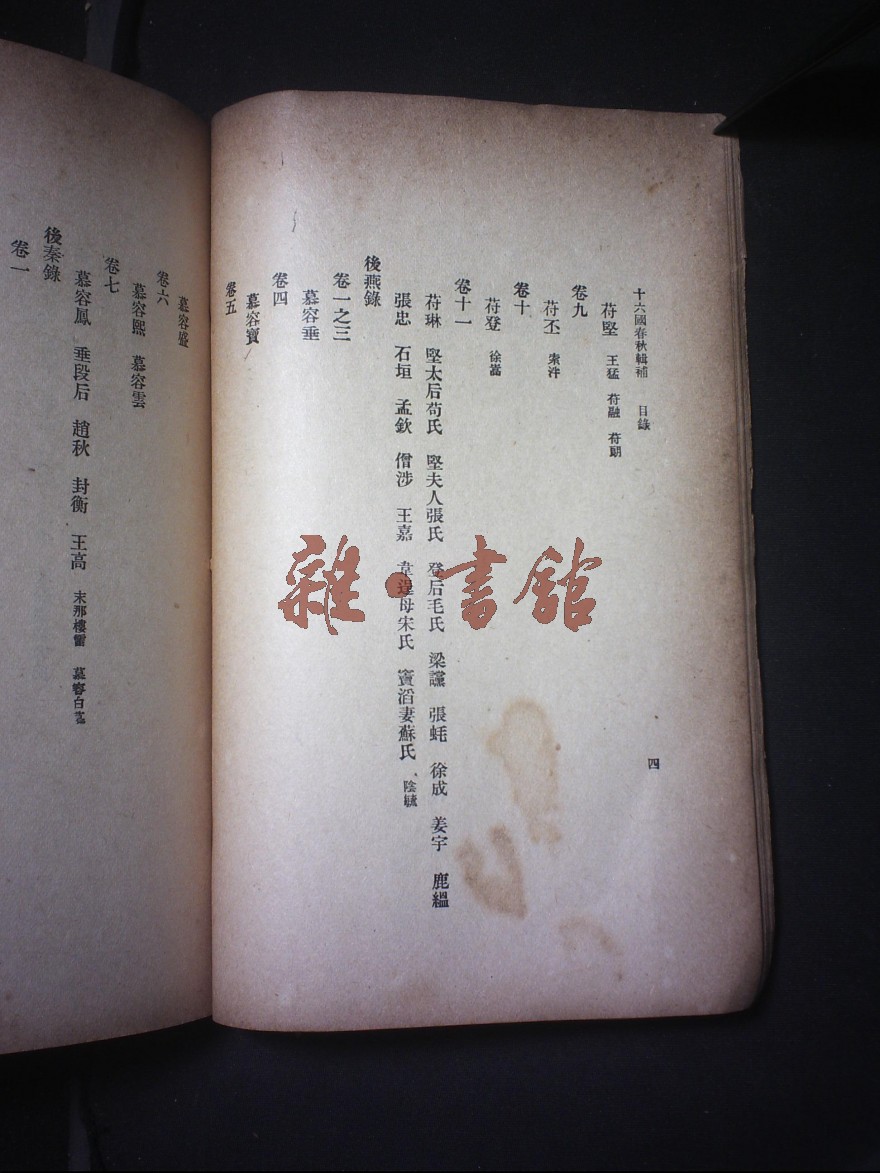 十六國春秋輯補 目錄 四
苻堅 王猛 苻融 苻朗
卷九
苻丕 索泮
卷十
苻登 徐嵩
卷十一
苻琳 堅太后苟氏 堅夫人張氏 登后毛氏 梁讜 張蚝 徐成 姜宇 鹿縕
張忠 石垣 孟欽 僧涉 王嘉 韋逞母宋氏 竇滔妻蘇氏 陰毓
後燕錄
卷一之三
慕容垂
卷四
慕容寶
卷五
慕容盛
卷六
慕容熙 慕容雲
卷七
慕容鳳 垂段后 趙秋 封衡 王高 末那樓雷 慕容白
後秦錄
卷一
雜·書館